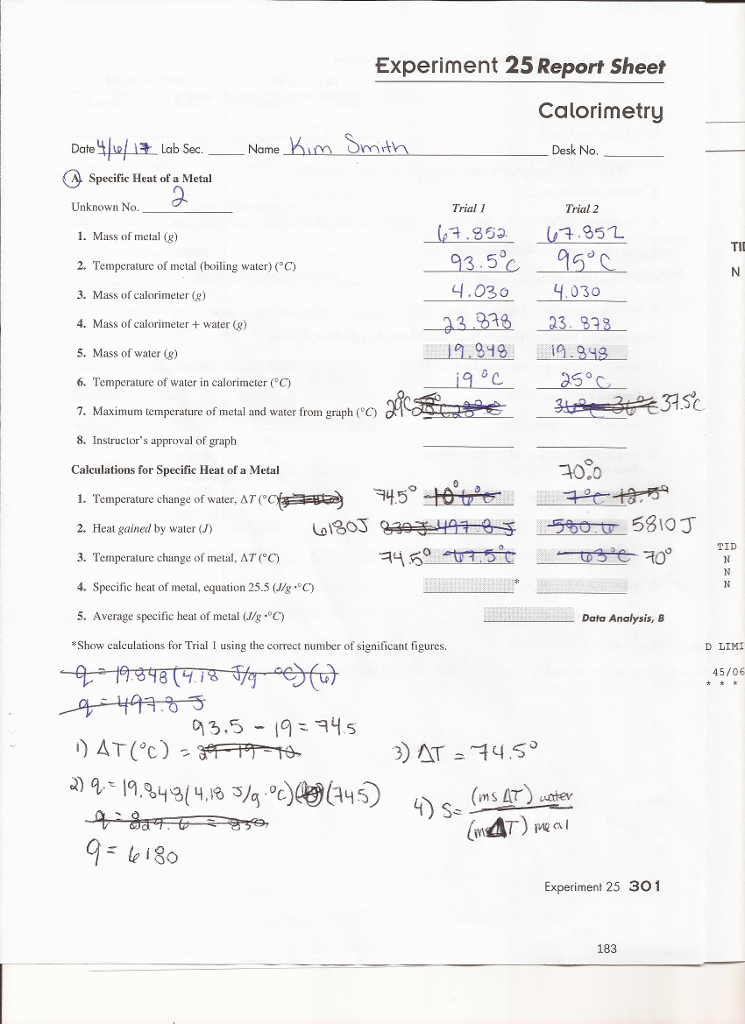 Experiment 25 Report Sheet
Calorimetry
Date 4/6/17 Lab Sec. Name Kim Smith Desk No.
A. Specific Heat of a Metal
Unknown No. 2 Trial 1 Trial 2
1. Mass of metal (g) 67.852 67.852
2. Temperature of metal (boiling water) (°C) 93.5°C 95°C
3. Mass of calorimeter (g) 4.030 4.030
4. Mass of calorimeter + water (g) 23.878 23.878
5. Mass of water (g) 19.848 19.848
6. Temperature of water in calorimeter (°C) 19°C 25°C
7. Maximum temperature of metal and water from graph (°C) 29°C 37.5°C
8. Instructor's approval of graph
Calculations for Specific Heat of a Metal 70.0°
1. Temperature change of water, ΔT (°C) 74.5° 10° 6°C 7°C 12.5°
2. Heat gained by water (J) 6180J 830J 497.8 J 580.6 5810 J
3. Temperature change of metal, ΔT (°C) 74.5° 67.5°C 63°C 70°
4. Specific heat of metal, equation 25.5 (J/g·°C) *
5. Average specific heat of metal (J/g·°C) Data Analysis, B
*Show calculations for Trial 1 using the correct number of significant figures.
q = 19.848(4.18 J/g °C)(6)
q = 497.8 J
93.5 - 19 = 74.5
1) ΔT(°C) = 29-19=10
3) ΔT = 74.5°
2) q = 19.848(4.18 J/g·°C)(74.5)
q = 829.6 = 830
q = 6180
4) S = (ms ΔT) water
(ms ΔT) meal
Experiment 25 301
183
TID
N
N
N
D LIMI
45/06
* * *